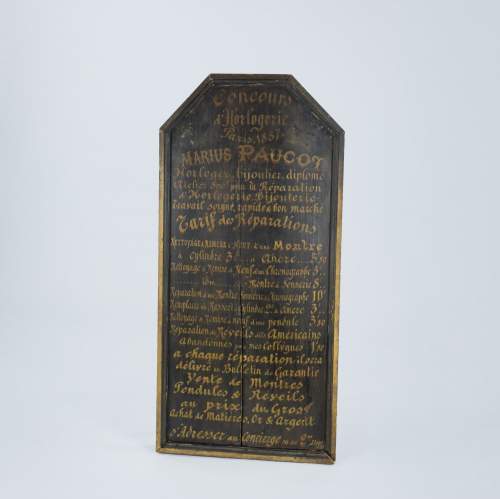 Concours
d'Horlogerie
Paris 1887
MARIUS PAUCOT
Horloger, Bijoutier, diplômé
Atelier Spal pour la Réparation
d'Horlogerie, Bijouterie
Travail soigné, rapide & bon marché
Tarif des Réparations
NETTOYAGE & REMISE à NEUF d'une Montre
à cylindre 3 Ancre 3,50
Nettoyage & Remise à Neuf d'un Chronographe 5
Montre à Sonnerie 5
Réparation d'une Montre Sonnerie Chronographe 10
Remplacer un Ressort de Cylindre ou de Ancre 3
Nettoyage & Remise à neuf d'une pendule 3,50
Réparation de Réveils dits Américains
Abandonnés par mes Collègues 1,50
à chaque réparation il sera
délivré un Bulletin de Garantie
Vente de Montres
Pendules & Réveils
au prix du Gros
Achat de Matières, Or & Argent
S'Adresser au Concierge ou au 2me